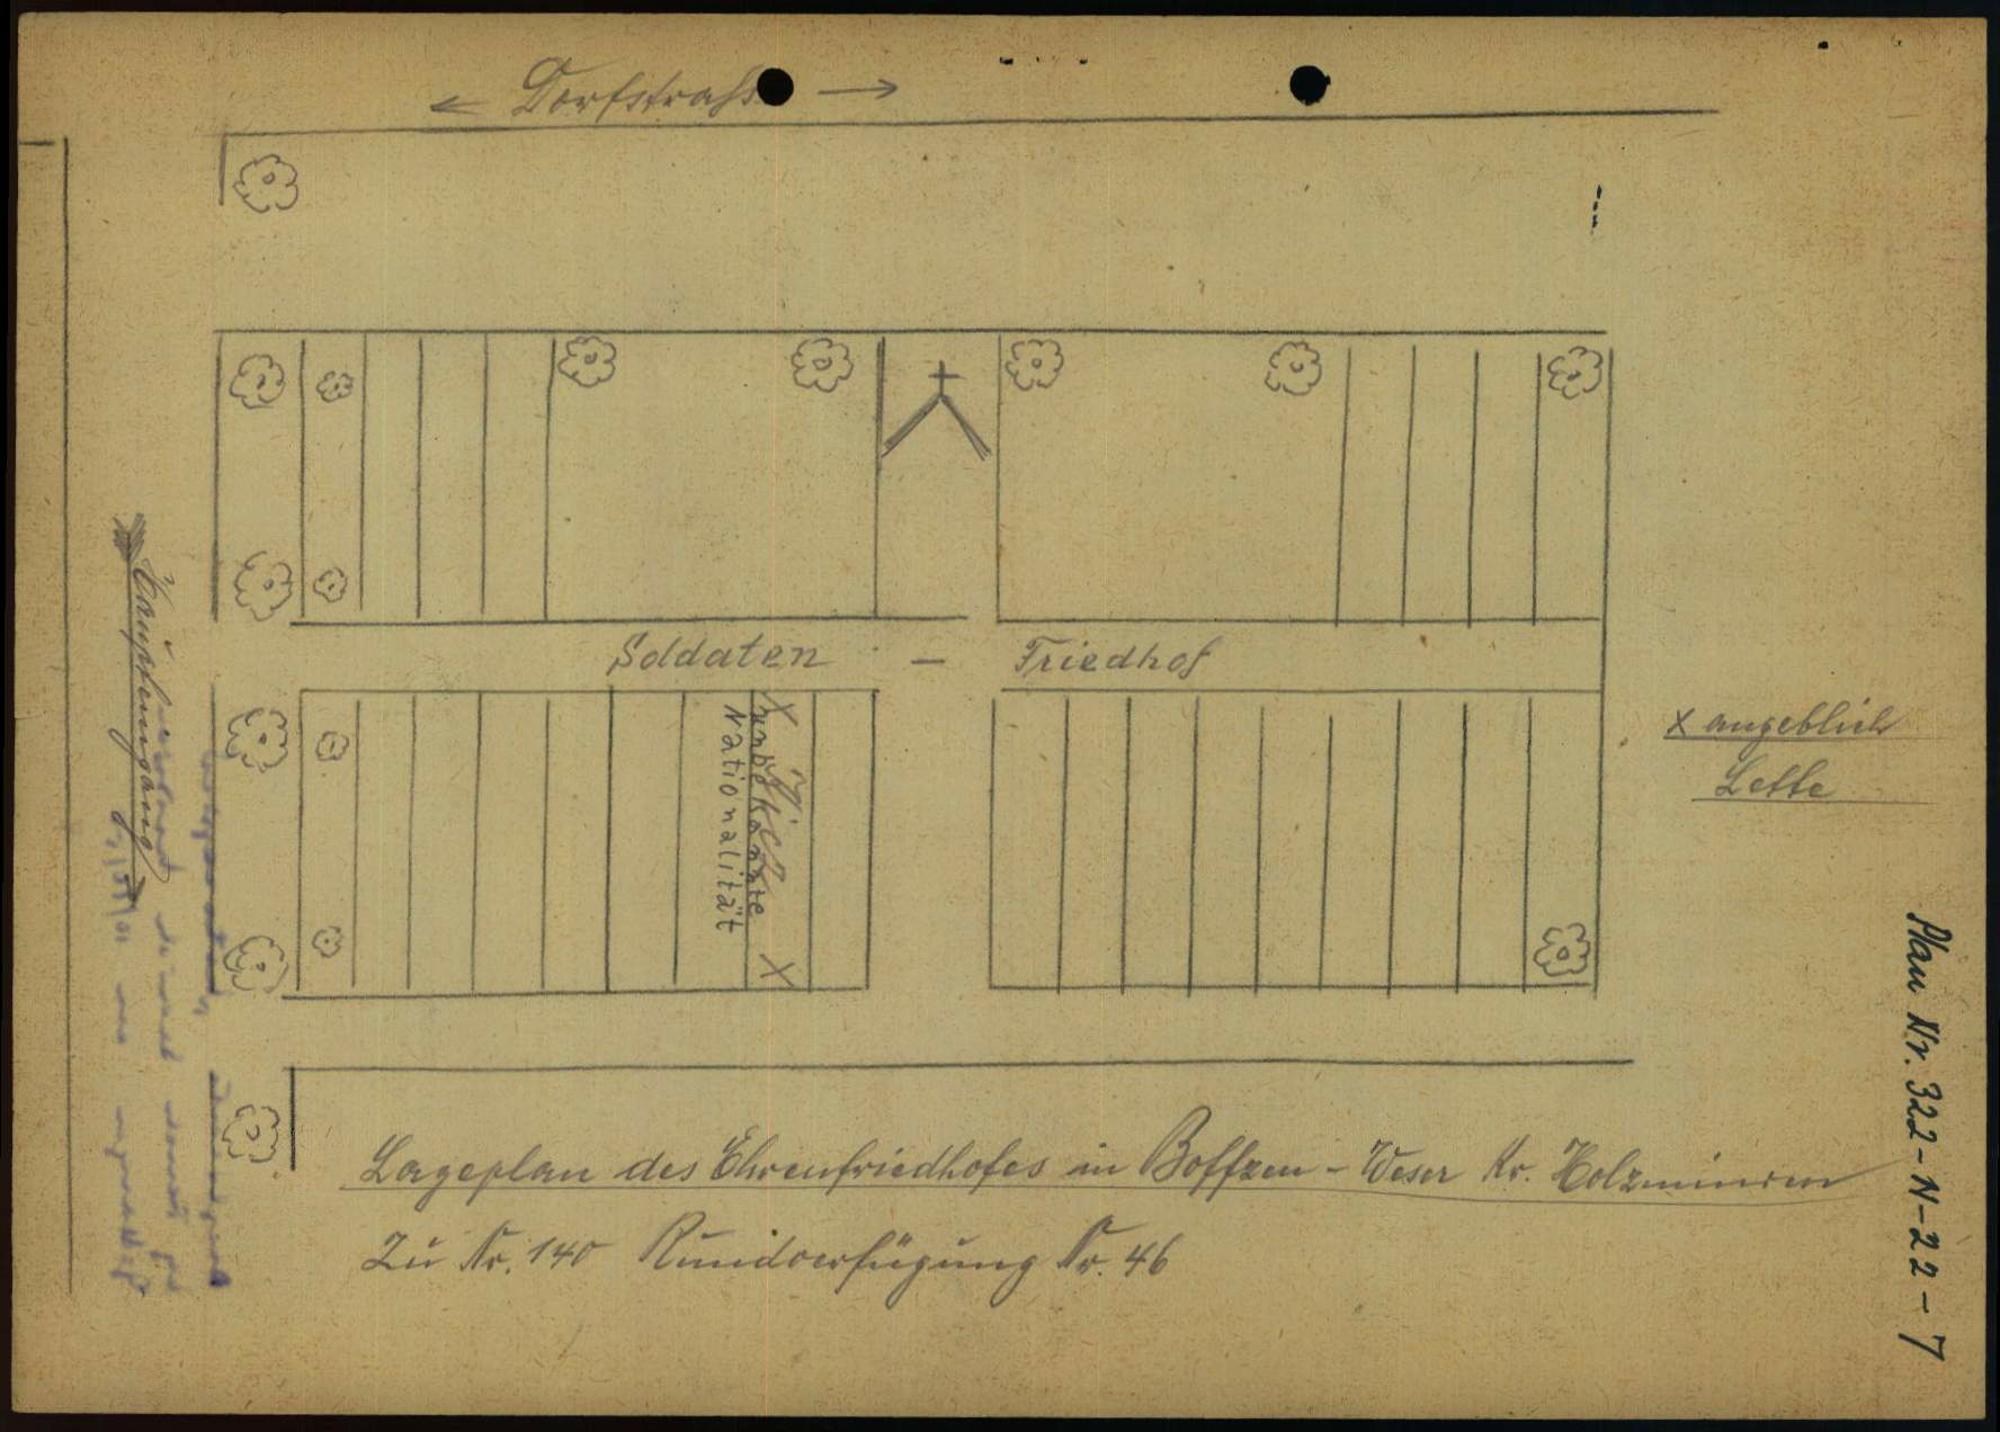 ← Dorfstraße →
Haupteingang
Soldaten – Friedhof
X unbekannte X
Nationalität
x angeblich
Lette
Plan Nr. 322-N-22-7
Lageplan des Ehrenfriedhofes in Boffzen - Weser Kr. Holzminden
Zu Nr. 140 Rundverfügung Nr. 46